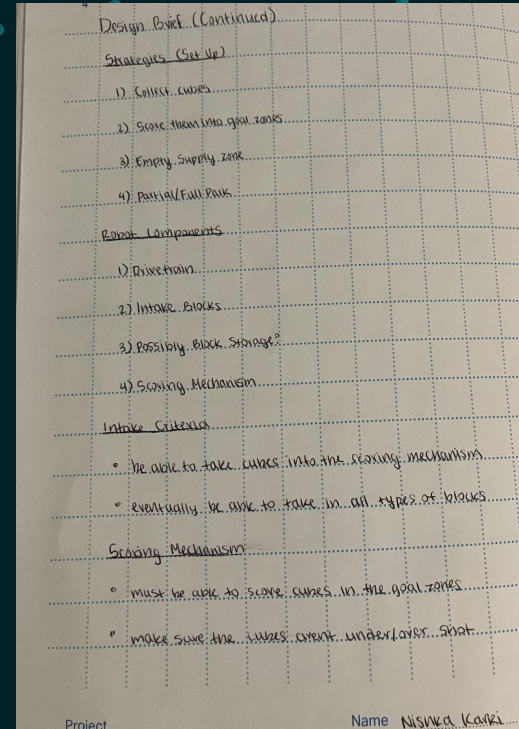 4
Design Brief (Continued)
Strategies (Set Up)
1) Collect cubes
2) Score them into goal zones
3) Empty Supply zone
4) Partial/Full Park
Robot Components
1) Drivetrain
2) Intake Blocks
3) Possibly Block Storage?
4) Scoring Mechanism
Intake Criteria
• be able to take cubes into the scoring mechanism
• eventually be able to take in all types of blocks
Scoring Mechanism
• must be able to score cubes in the goal zones
• make sure the cubes arent under/over shot
Project Name Nishka Karki